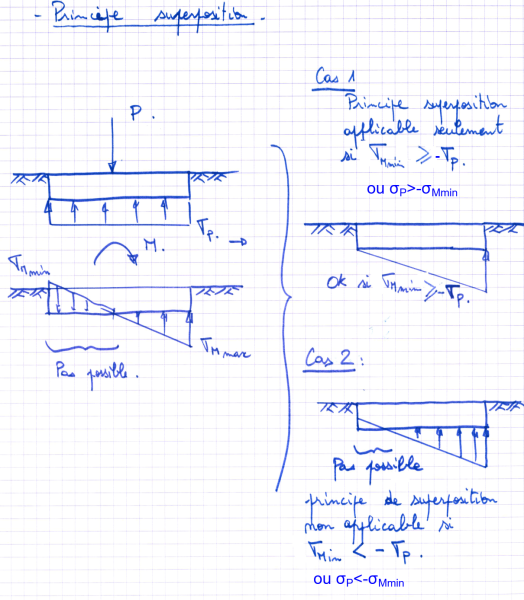 - Principe superposition.
P.
σP. →
M.
σMmin
σMmax
Pas possible.
Cas 1
Principe superposition
applicable seulement
si σMmin ≥ -σP.
ou σP>-σMmin
OK si σMmin ≥ -σP.
Cas 2 :
Pas possible
principe de superposition
non applicable si
σMin < - σP.
ou σP<-σMmin